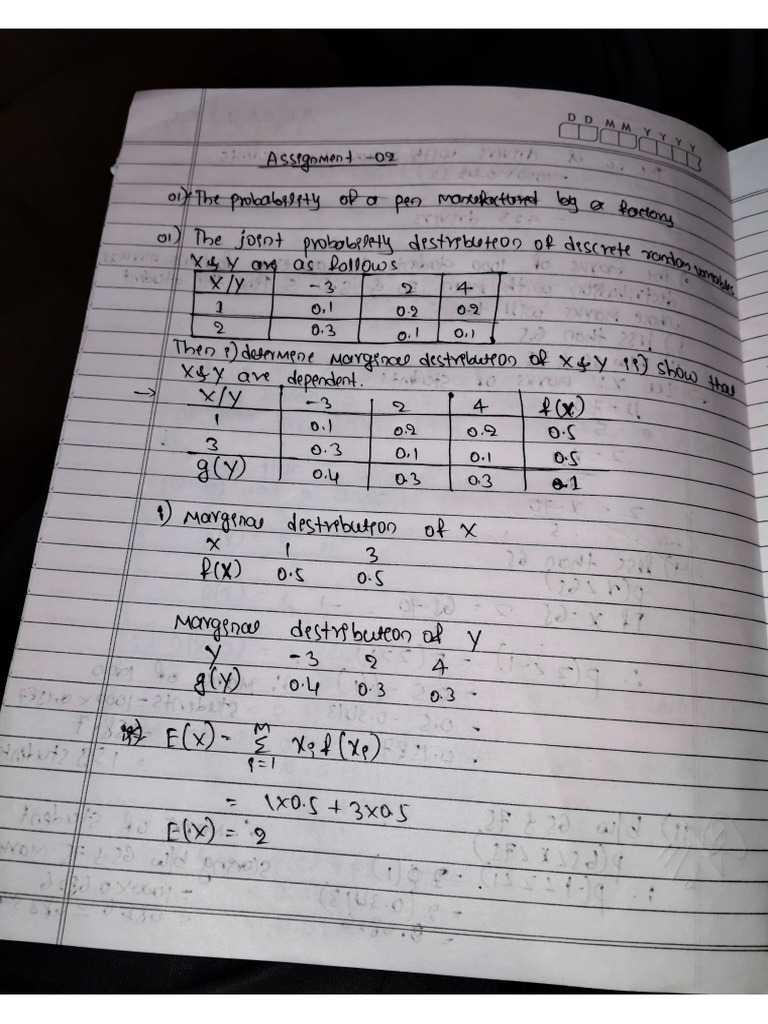 D D M M Y Y Y Y
Assignment -02
01) The probability of a pen manufactured by a factory
01) The joint probability destribution of descrete random variables
X & Y are as follows
X/Y -3 2 4
1 0.1 0.2 0.2
2 0.3 0.1 0.1
Then i) determene marginal destribution of X & Y ii) show that
X & Y are dependent.
→ X/Y -3 2 4 f(x)
1 0.1 0.2 0.2 0.5
3 0.3 0.1 0.1 0.5
g(Y) 0.4 0.3 0.3 1
i) Marginal destribution of X
X 1 3
f(X) 0.5 0.5
Marginal destribution of Y
Y -3 2 4
g(Y) 0.4 0.3 0.3
ii) E(X) = M Σ i=1 xi f(xi)
= 1x0.5 + 3x0.5
E(X) = 2